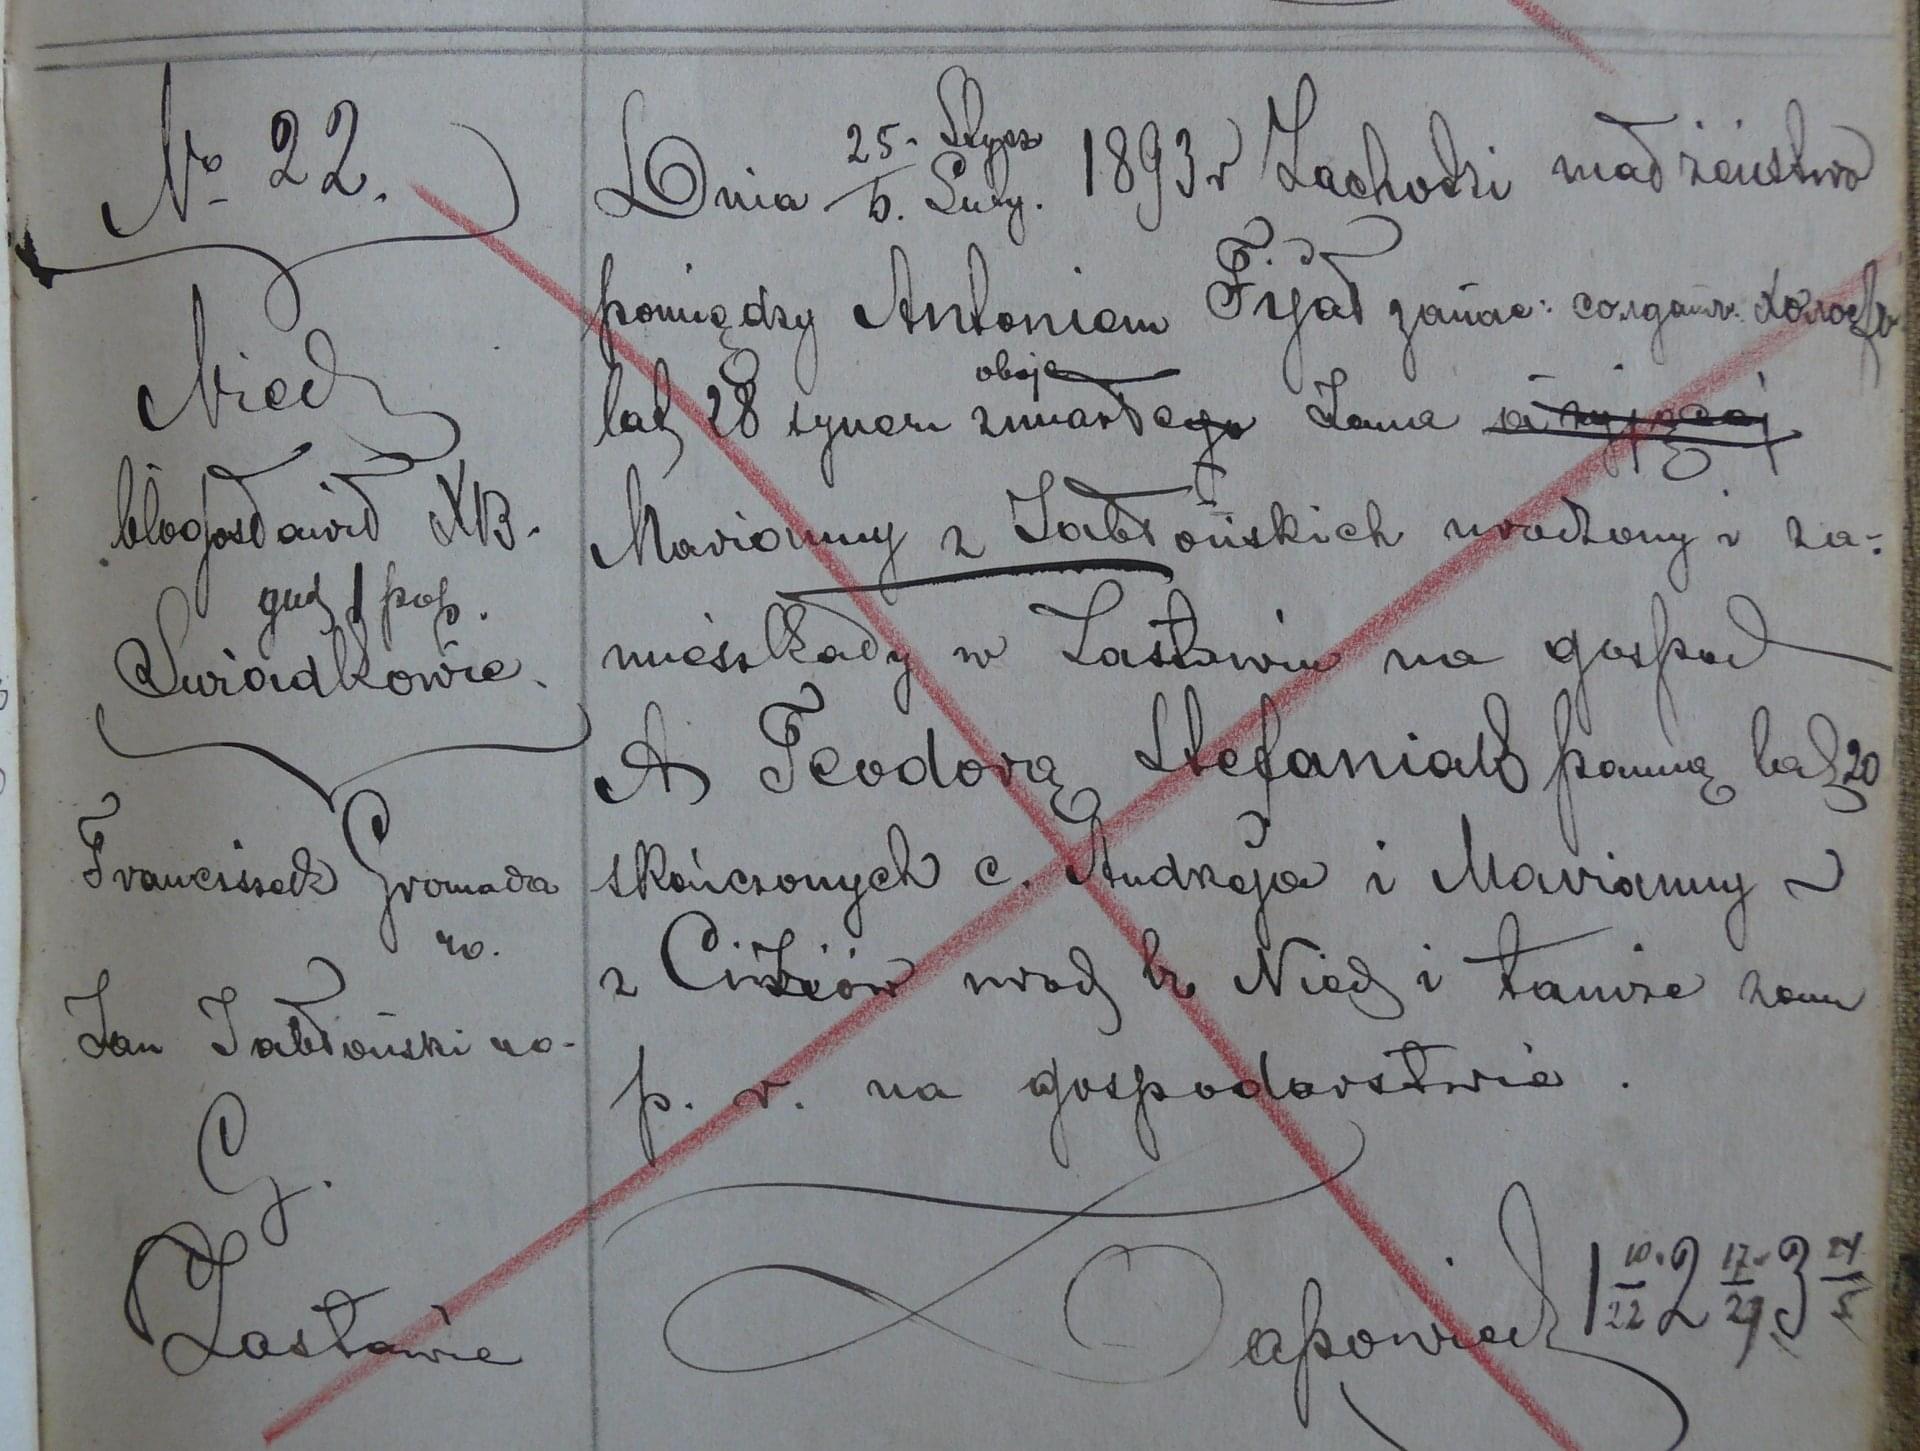 № 22.
Niedź
błogosławił XB.
godz 1 pop.
Swiadkowie.
Franciszek Gromada
ro.
Jan Jabłoński ro-
G.
Zastawie
Dnia 25. Stycz 1893 r Zachodzi madżeństwo
6. Luty.
pomiędzy Antoniem Fijał запас: солдат. холост
lat 28 synem oboje zmarłego Jana
Maryanny z Jabłońskich urodzony i za-
mieszkały w Zastawiu na gospod
A Teodorą Stefaniak panną lat 20
skończonych c. Andrzeja i Marianny
z urodz w Niedź i tamże zam
p. r. na gospodarstwie.
Zapowiedź 1 10/22 2 17/29 3 24/5